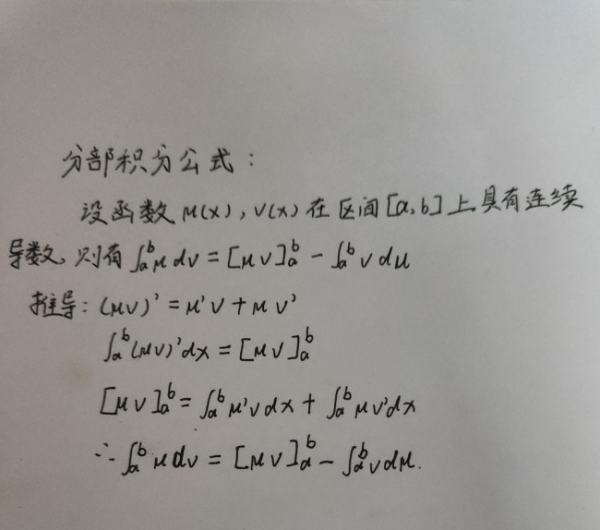 分部积分公式：
设函数 μ(x), v(x) 在区间[a,b]上具有连续
导数,则有 ∫ₐᵇ μ dv = [μv]ₐᵇ - ∫ₐᵇ v dμ
推导：(μv)' = μ'v + μv'
∫ₐᵇ (μv)'dx = [μv]ₐᵇ
[μv]ₐᵇ = ∫ₐᵇ μ'v dx + ∫ₐᵇ μv'dx
∴ ∫ₐᵇ μ dv = [μv]ₐᵇ - ∫ₐᵇ v dμ.